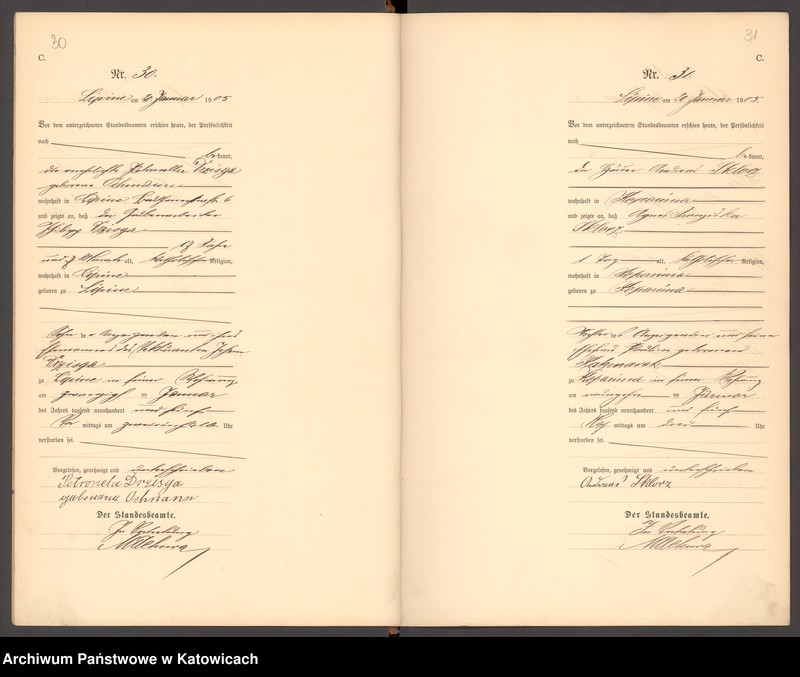 30
C.
Nr. 30.
Lipine am 20. Januar 1905
Vor dem unterzeichneten Standesbeamten erschien heute, der Persönlichkeit
nach
bekannt,
die verehelichte Petronella Dzeisga
geborene Ochmann
wohnhaft in Lipine
und zeigte an, daß der Grubenarbeiter
Dzeisga
19 Jahre
und Monate alt, katholischer Religion,
wohnhaft in Lipine
geboren zu Lipine
Sohn der Anzeigenden und ihres
Ehemannes des
Dzeisga
zu Lipine in seiner Wohnung
am zwanzigsten Januar
des Jahres tausend neunhundert und fünf
Vor mittags um Uhr
verstorben sei.
Vorgelesen, genehmigt und unterschrieben
Petronela Dzeisga
geborene Ochmann
Der Standesbeamte.
In Vertretung
31
C.
Nr. 31.
Lipine am 20. Januar 1905.
Vor dem unterzeichneten Standesbeamten erschien heute, der Persönlichkeit
nach
bekannt,
der Häuer Andreas Sklorz
wohnhaft in Chropaczow
und zeigte an, daß Agnes Franziska
Sklorz
1 Tag alt, katholischer Religion,
wohnhaft in
geboren zu
Tochter des Anzeigenden und seiner
Ehefrau Pauline geborenen
zu in seiner Wohnung
am neunzehnten Januar
des Jahres tausend neunhundert und fünf
Nach mittags um drei Uhr
verstorben sei.
Vorgelesen, genehmigt und unterschrieben
Andreas Sklorz
Der Standesbeamte.
In Vertretung
Archiwum Państwowe w Katowicach